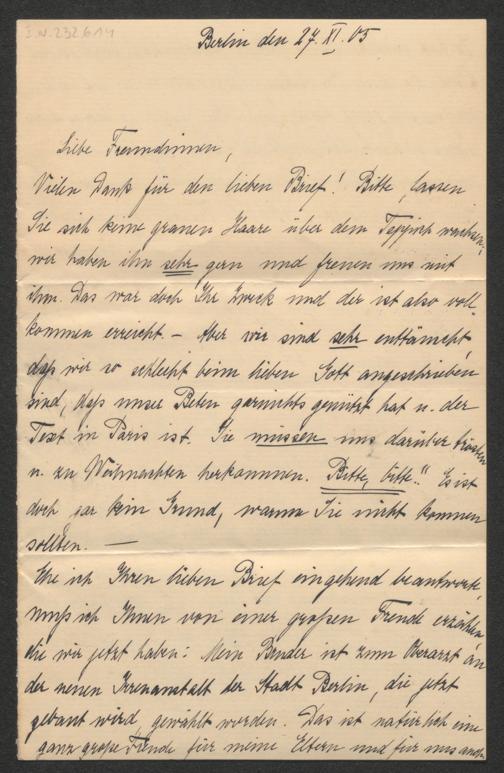 I.N. 232.614
Berlin den 27. XI. 05
Liebe Freundinnen,
Vielen Dank für den lieben Brief! Bitte, lassen
Sie sich keine grauen Haare über dem Teppich wachsen,
wir haben ihn sehr gern und freuen uns mit
ihm. Das war doch Ihr Zweck und der ist also voll-
kommen erreicht. – Aber wir sind sehr enttäuscht,
daß wir so schlecht beim lieben Gott angeschrieben
sind, daß unser Beten garnichts genützt hat u. der
Text in Paris ist. Sie müssen uns darüber trösten
u. zu Weihnachten herkommen. Bitte, bitte!! Es ist
doch gar kein Grund, warum Sie nicht kommen
sollten. —
Ehe ich Ihren lieben Brief eingehend beantworte,
muß ich Ihnen von einer großen Freude erzählen,
die wir jetzt haben: Mein Bruder ist zum Oberarzt an
der neuen Irrenanstalt der Stadt Berlin, die jetzt
gebaut wird, gewählt worden. Das ist natürlich eine
ganz große Freude für meine Eltern und für uns auch